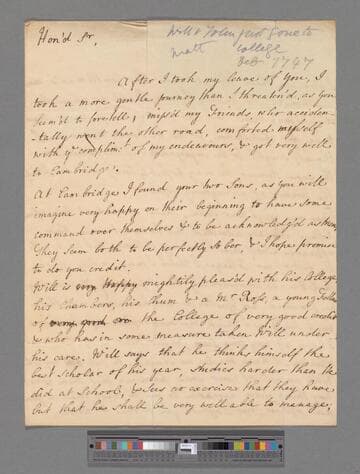 Will & John just gone to
Matt college
Feb 1747
Hon'd Sr,
After I took my leave of You, I
took a more gentle journey than I threaten'd, as you
seem'd to foretell; miss'd my Friends, who acciden-
-tally went the other road, comforted myself
with ye complimt of my endeavours, & got very well
to Cambridge.
At Cambridge I found your two Sons, as you will
imagine very happy on their beginning to have some
command over themselves & to be acknowledg'd as Men.
They seem both to be perfectly sober, & I hope promise
to do you credit.
Will is very happy mightily pleas'd with his College
his Chambers, his Chum & a Mr Ross, a young Fellow
of very good the College of very good credit
& who has in some measure taken Will under
his care. Will says that he thinks himself the
best Scholar of his year, studies harder than he
did at School, & sees no exercise that they have
but that he shall be very well able to manage,